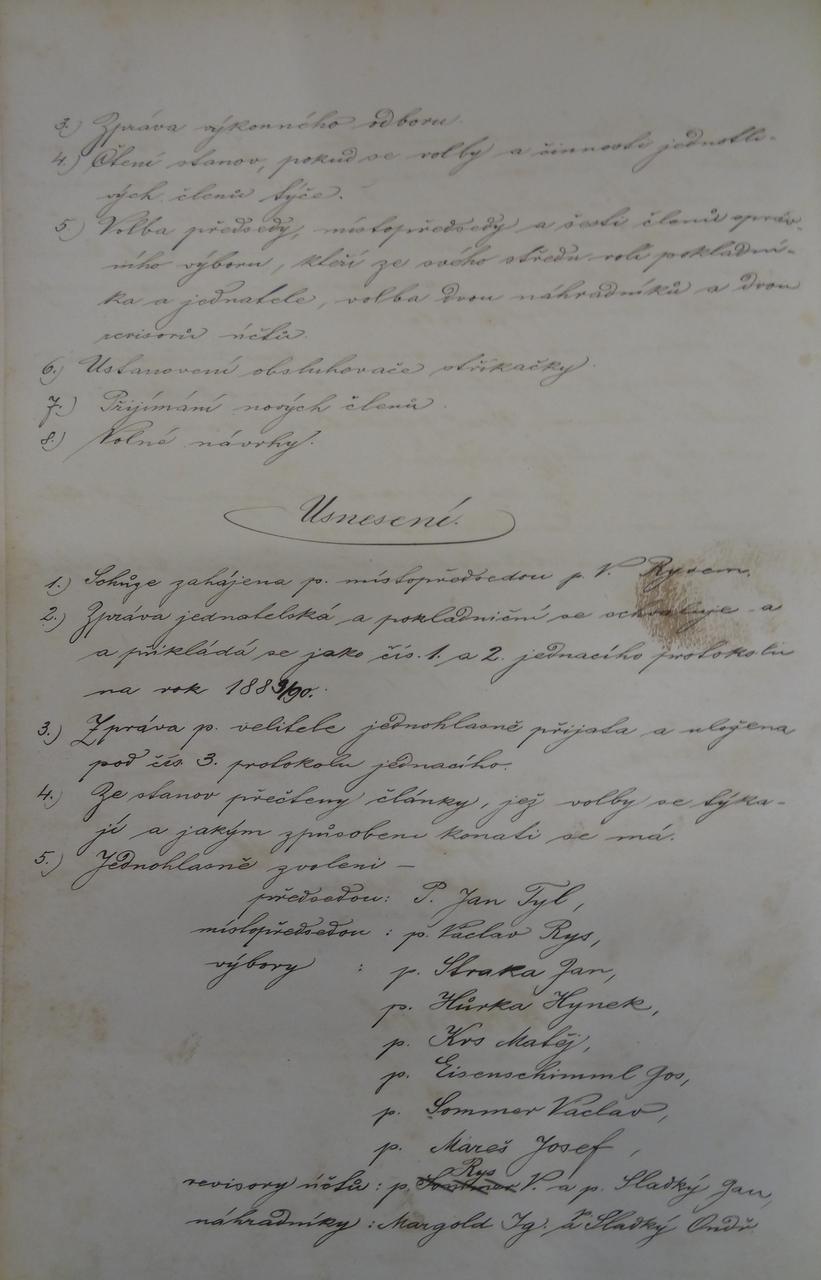 3.) Zpráva výkonného odboru.
4.) Čtení stanov, pokud se volby a činnosti jednotli-
vých členů týče.
5.) Volba předsedy, místopředsedy a šesti členů správ-
ního výboru, kteří ze svého středu volí pokladní-
ka a jednatele, volba dvou náhradníků a dvou
revisorů účtů.
6.) Ustanovení obsluhovače stříkačky.
7.) Přijímání nových členů.
8.) Volné návrhy.
Usnesení.
1.) Schůze zahájena p. místopředsedou p. V. Rysem.
2.) Zpráva jednatelská a pokladniční se schvaluje a
a přikládá se jako čís. 1. a 2. jednacího protokolu
na rok 1889/90.
3.) Zpráva p. velitele jednohlasně přijata a uložena
pod čís. 3. protokolu jednacího.
4.) Ze stanov přečteny články, jež volby se týka-
jí a jakým způsobem konati se má.
5.) Jednohlasně zvoleni —
předsedou: P. Jan Tyl,
místopředsedou : p. Václav Rys,
výbory : p. Straka Jan,
p. Hůrka Hynek,
p. Krs Matěj,
p. Eisenschimml Jos,
p. Sommer Václav,
p. Mareš Josef,
Rys
revisory účtů : p. Sommer V. a p. Sladký Jan,
náhradníky : Margold Ig. a Sladký Ondř.